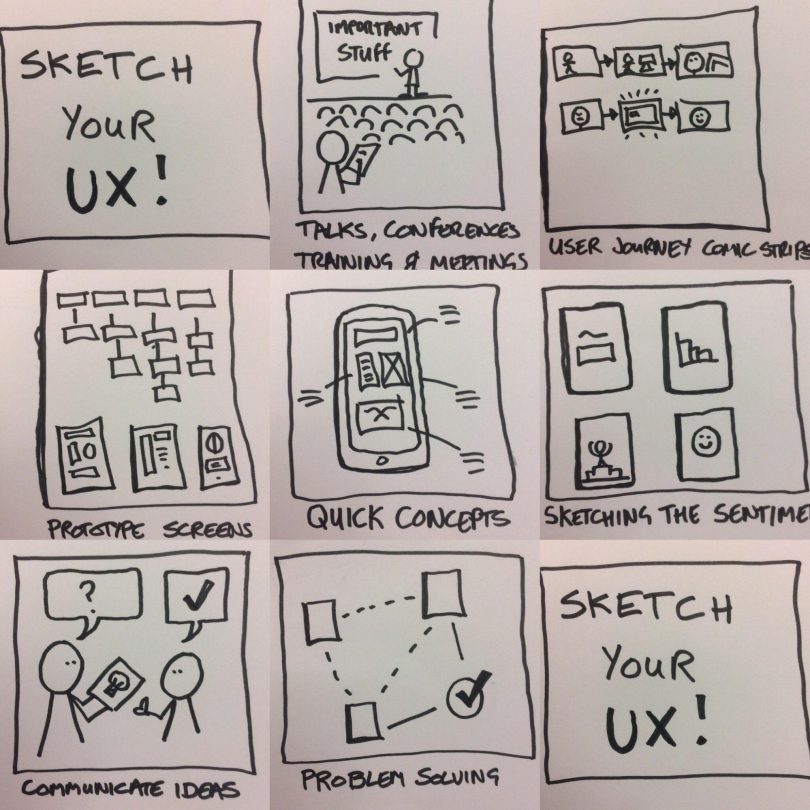 SKETCH
YOUR
UX!
IMPORTANT
STUFF
TALKS, CONFERENCES
TRAINING & MEETINGS
USER JOURNEY COMIC STRIPS
PROTOTYPE SCREENS
QUICK CONCEPTS
SKETCHING THE SENTIME
?
COMMUNICATE IDEAS
PROBLEM SOLVING
SKETCH
YOUR
UX!